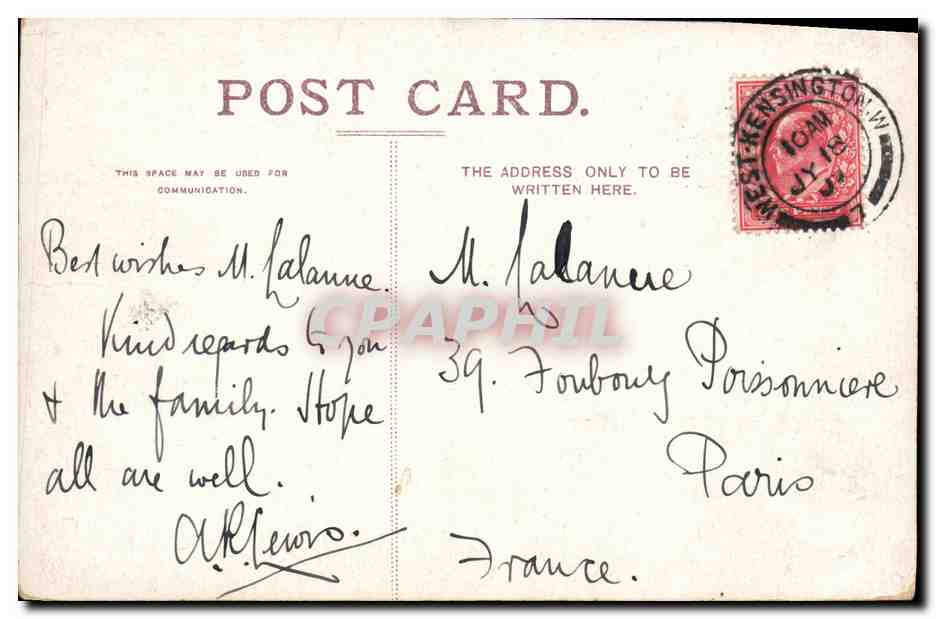 POST CARD.
THIS SPACE MAY BE USED FOR
COMMUNICATION.
THE ADDRESS ONLY TO BE
WRITTEN HERE.
WEST-KENSINGTON.W
10 AM
JY 18
Best wishes M. Lalanne.
Kind regards to you
& the family. Hope
all are well.
A.R. Lewis.
M. Lalanne
39. Foubourg Poissonniere
Paris
France.
CPAPHIL